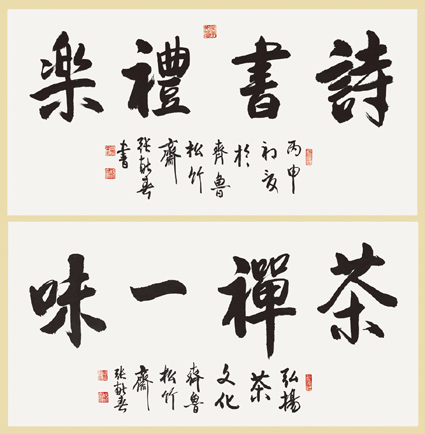 詩書禮楽
丙申
初夏
於
齊魯
松竹
齋
書
茶禪一味
弘揚
茶
文化
齊魯
松竹
齋